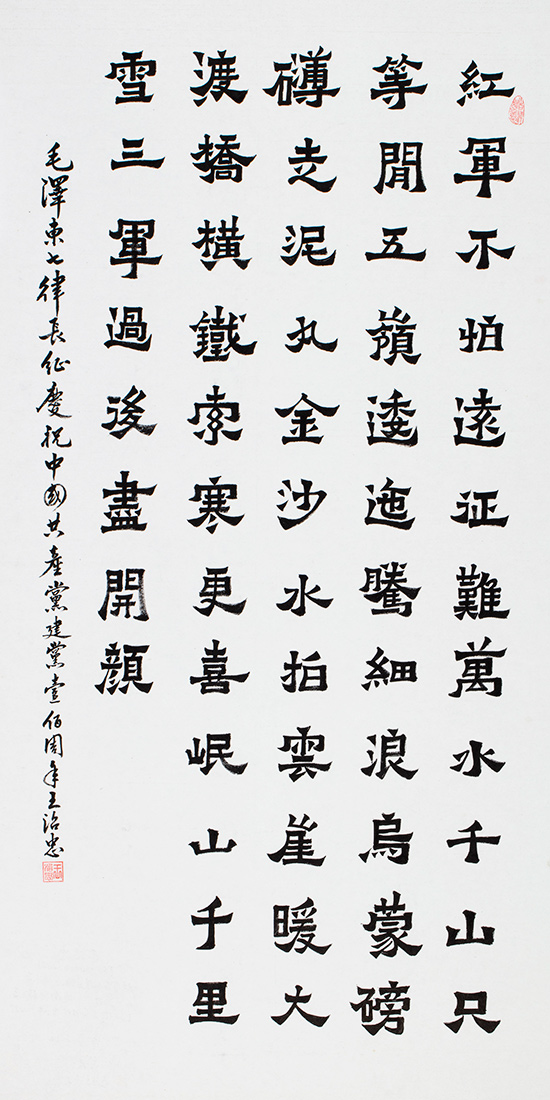 紅軍不怕遠征難萬水千山只
等閒五嶺逶迤騰細浪烏蒙磅
礴走泥丸金沙水拍雲崖暖大
渡橋橫鐵索寒更喜岷山千里
雪三軍過後盡開顏
毛澤東七律長征慶祝中國共產黨建黨壹佰周年王治忠